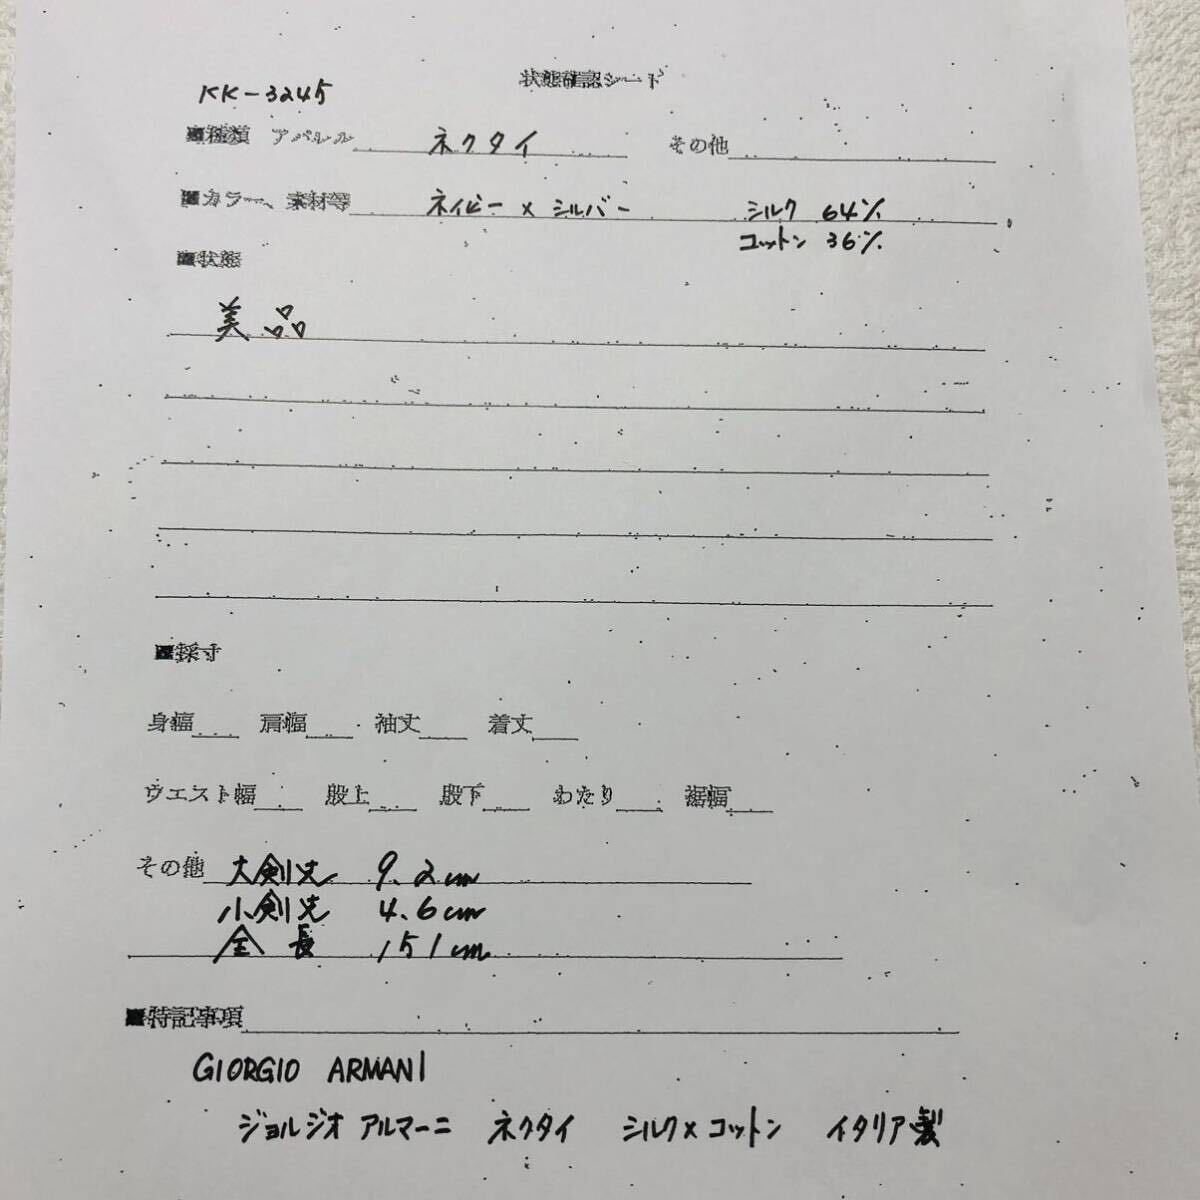 状態確認シート
KK-3245
■種類 アパレル ネクタイ その他
■カラー、素材等 ネイビー × シルバー シルク 64%
コットン 36%
■状態
美品
■採寸
身幅 肩幅 袖丈 着丈
ウエスト幅 股上 股下 わたり 裾幅
その他 大剣先 9.2cm
小剣先 4.6cm
全長 151cm
■特記事項
GIORGIO ARMANI
ジョルジオ アルマーニ ネクタイ シルク×コットン イタリア製